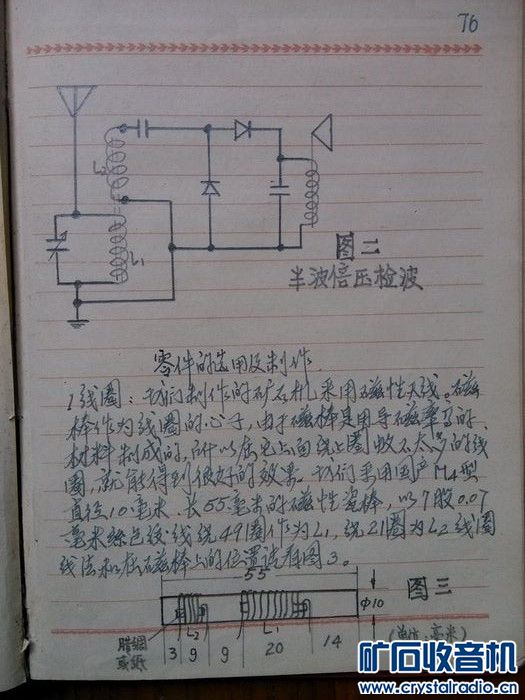 76
L2
L1
图二
半波倍压检波
零件的选用及制作
1 线圈：我们制作的矿石机采用磁性天线。磁
棒作为线圈的心子，由于磁棒是用导磁率高的
材料制成的，所以在它上面绕上圈数不太多的线
圈，就能得到很好的效果。我们采用国产M4型
直径10毫米、长55毫米的磁性瓷棒，以7股0.07
毫米丝包纹线绕49圈作为L1，绕21圈为L2线圈
线法和在磁棒上的位置请看图3。
55
图三
Φ10
L2
L1
腊绸
或纸
3 9 9 20 14
(单位：毫米)
矿石收音机
www.crystalradio.cn